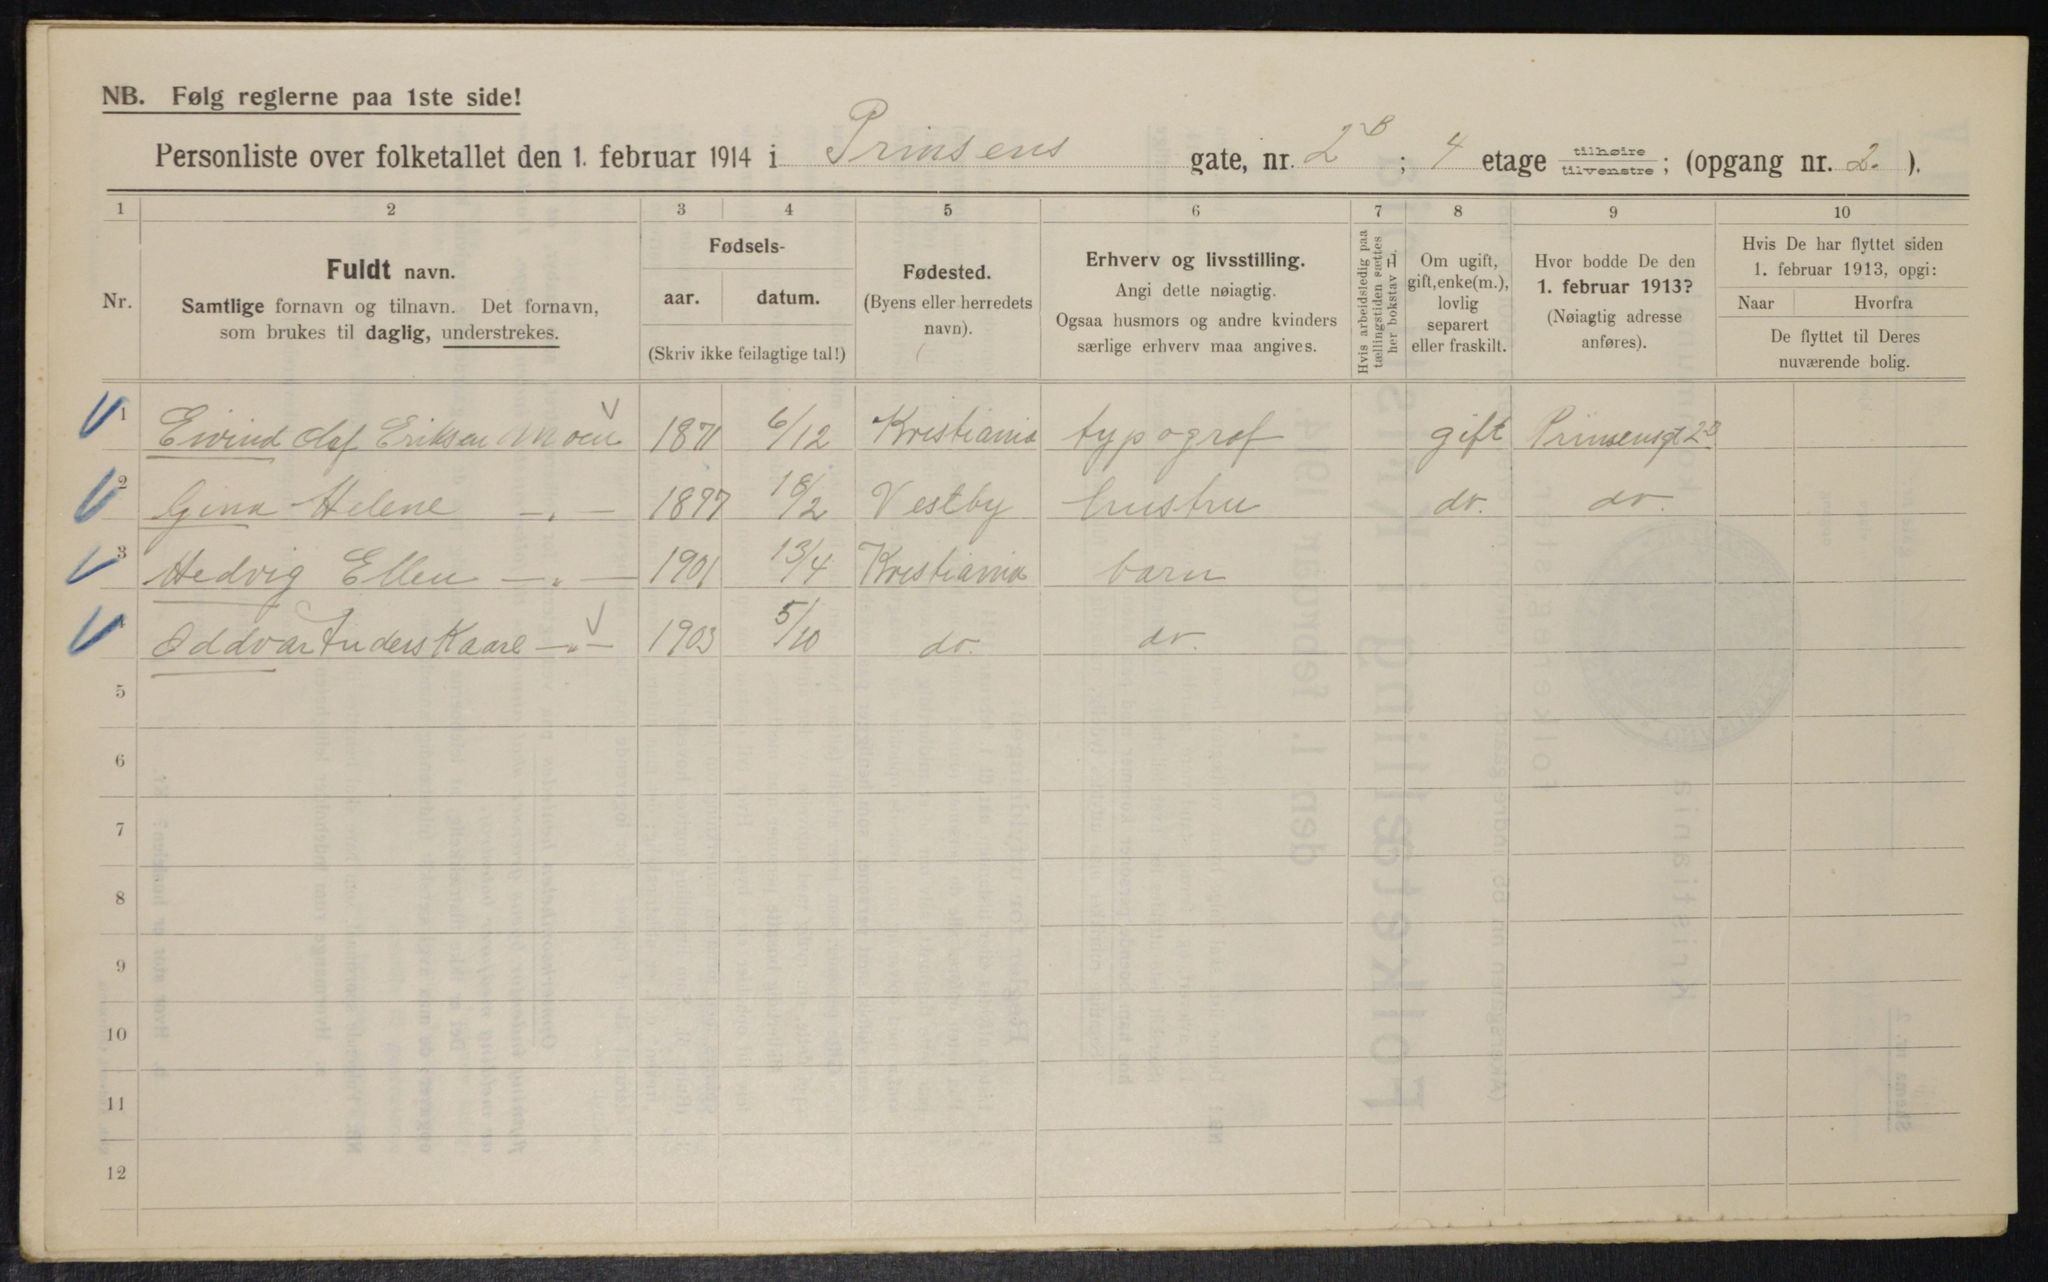 NB. Følg reglerne paa 1ste side!
Personliste over folketallet den 1. februar 1914 i Prinsens gate, nr. 2B ; 4 etage tilhøire tilvenstre ; (opgang nr. 2. ).
1 2 3 4 5 6 7 8 9 10
Nr.
Fuldt navn.
Samtlige fornavn og tilnavn. Det fornavn,
som brukes til daglig, understrekes.
Fødsels-
aar. datum.
(Skriv ikke feilagtige tal!)
Fødested.
(Byens eller herredets
navn).
Erhverv og livsstilling.
Angi dette nøiagtig.
Ogsaa husmors og andre kvinders
særlige erhverv maa angives.
Hvis arbeidsledig paa
tællingstiden sættes
her bokstav L.
Om ugift,
gift, enke(m.),
lovlig
separert
eller fraskilt.
Hvor bodde De den
1. februar 1913?
(Nøiagtig adresse
anføres).
Hvis De har flyttet siden
1. februar 1913, opgi:
Naar Hvorfra
De flyttet til Deres
nuværende bolig.
1 Eivind Olaf Eriksen Moen 1871 6/12 Kristiania typograf gift Prinsensgt 2B
2 Gina Helene —„— 1877 18/2 Vestby hustru do. do.
3 Hedvig Ellen —„— 1901 13/4 Kristiania barn
4 Oddvar Anders Kaare —„— 1903 5/10 do. do.
5
6
7
8
9
10
11
12